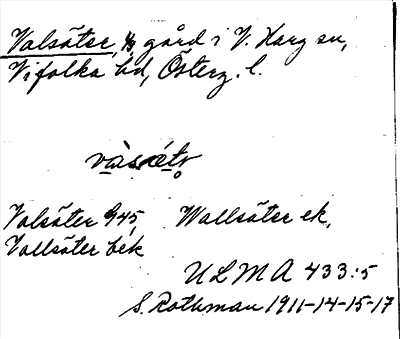 Valsätter, 1/8 gård i V. Harg sn,
Vifolka hd, Österg. l.
vàsætr
Valsäter G45, Wallsätter ek,
Vallsäter bek
ULMA 433:5
S. Rothman 1911-14-15-17